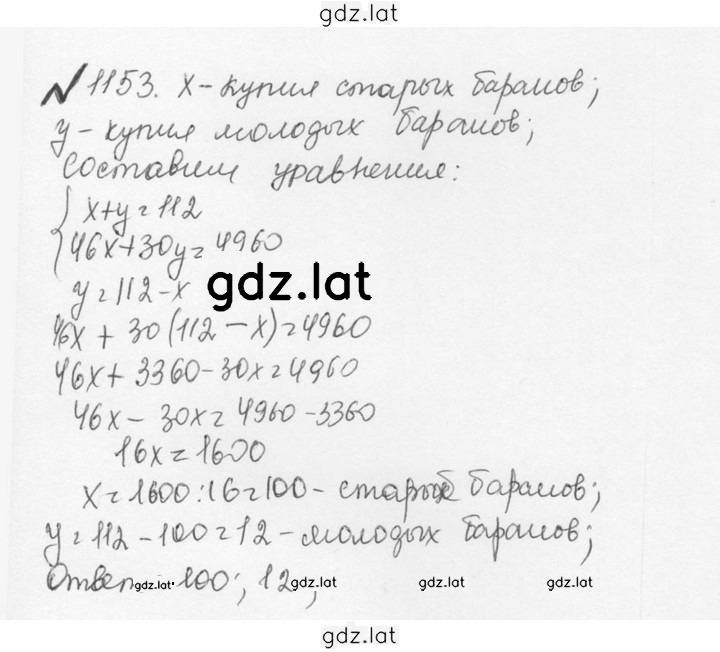 gdz.lat
№1153. x - купил старых баранов;
y - купил молодых баранов;
Составим уравнения:
x+y=112
46x+30y=4960
y=112-x gdz.lat
46x + 30(112 - x)=4960
46x + 3360 - 30x = 4960
46x - 30x = 4960 - 3360
16x = 1600
x = 1600 : 16 = 100 - старых баранов;
y = 112 - 100 = 12 - молодых баранов;
Ответ gdz.lat 100; 12 gdz.lat; gdz.lat gdz.lat
gdz.lat